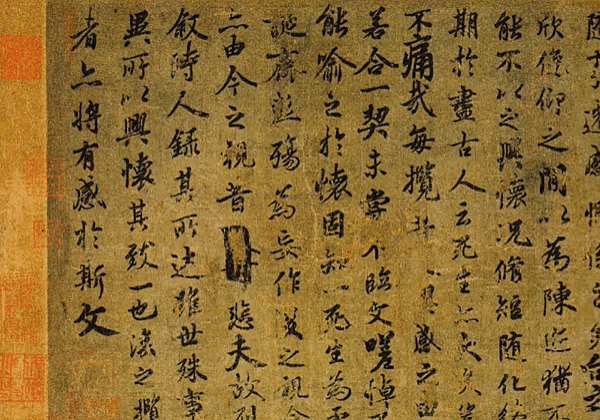 隨事遷感慨係之矣向之
欣俛仰之閒以為陳迹猶不
能不以之興懷況脩短隨化終
期於盡古人云死生亦大矣豈
不痛哉每攬昔人興感之由
若合一契未嘗不臨文嗟悼不
能喻之於懷固知一死生為虛
誕齊彭殤為妄作後之視今
亦由今之視昔悲夫故列
敘時人錄其所述雖世殊事
異所以興懷其致一也後之攬
者亦將有感於斯文